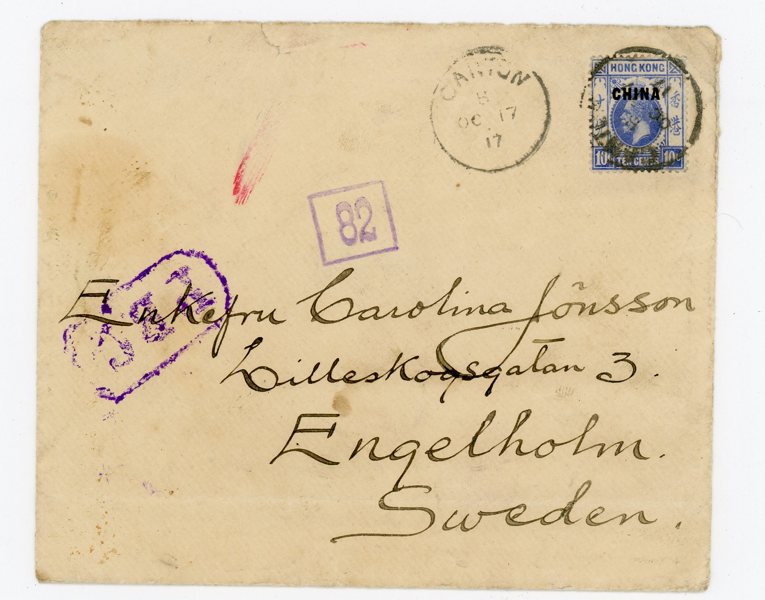 CANTON
B
OC 17
17
HONG KONG
CHINA
香港
10c TEN CENTS 10c
82
Enkefru Carolina Jönsson
Lilleskogsgatan 3.
Engelholm.
Sweden.